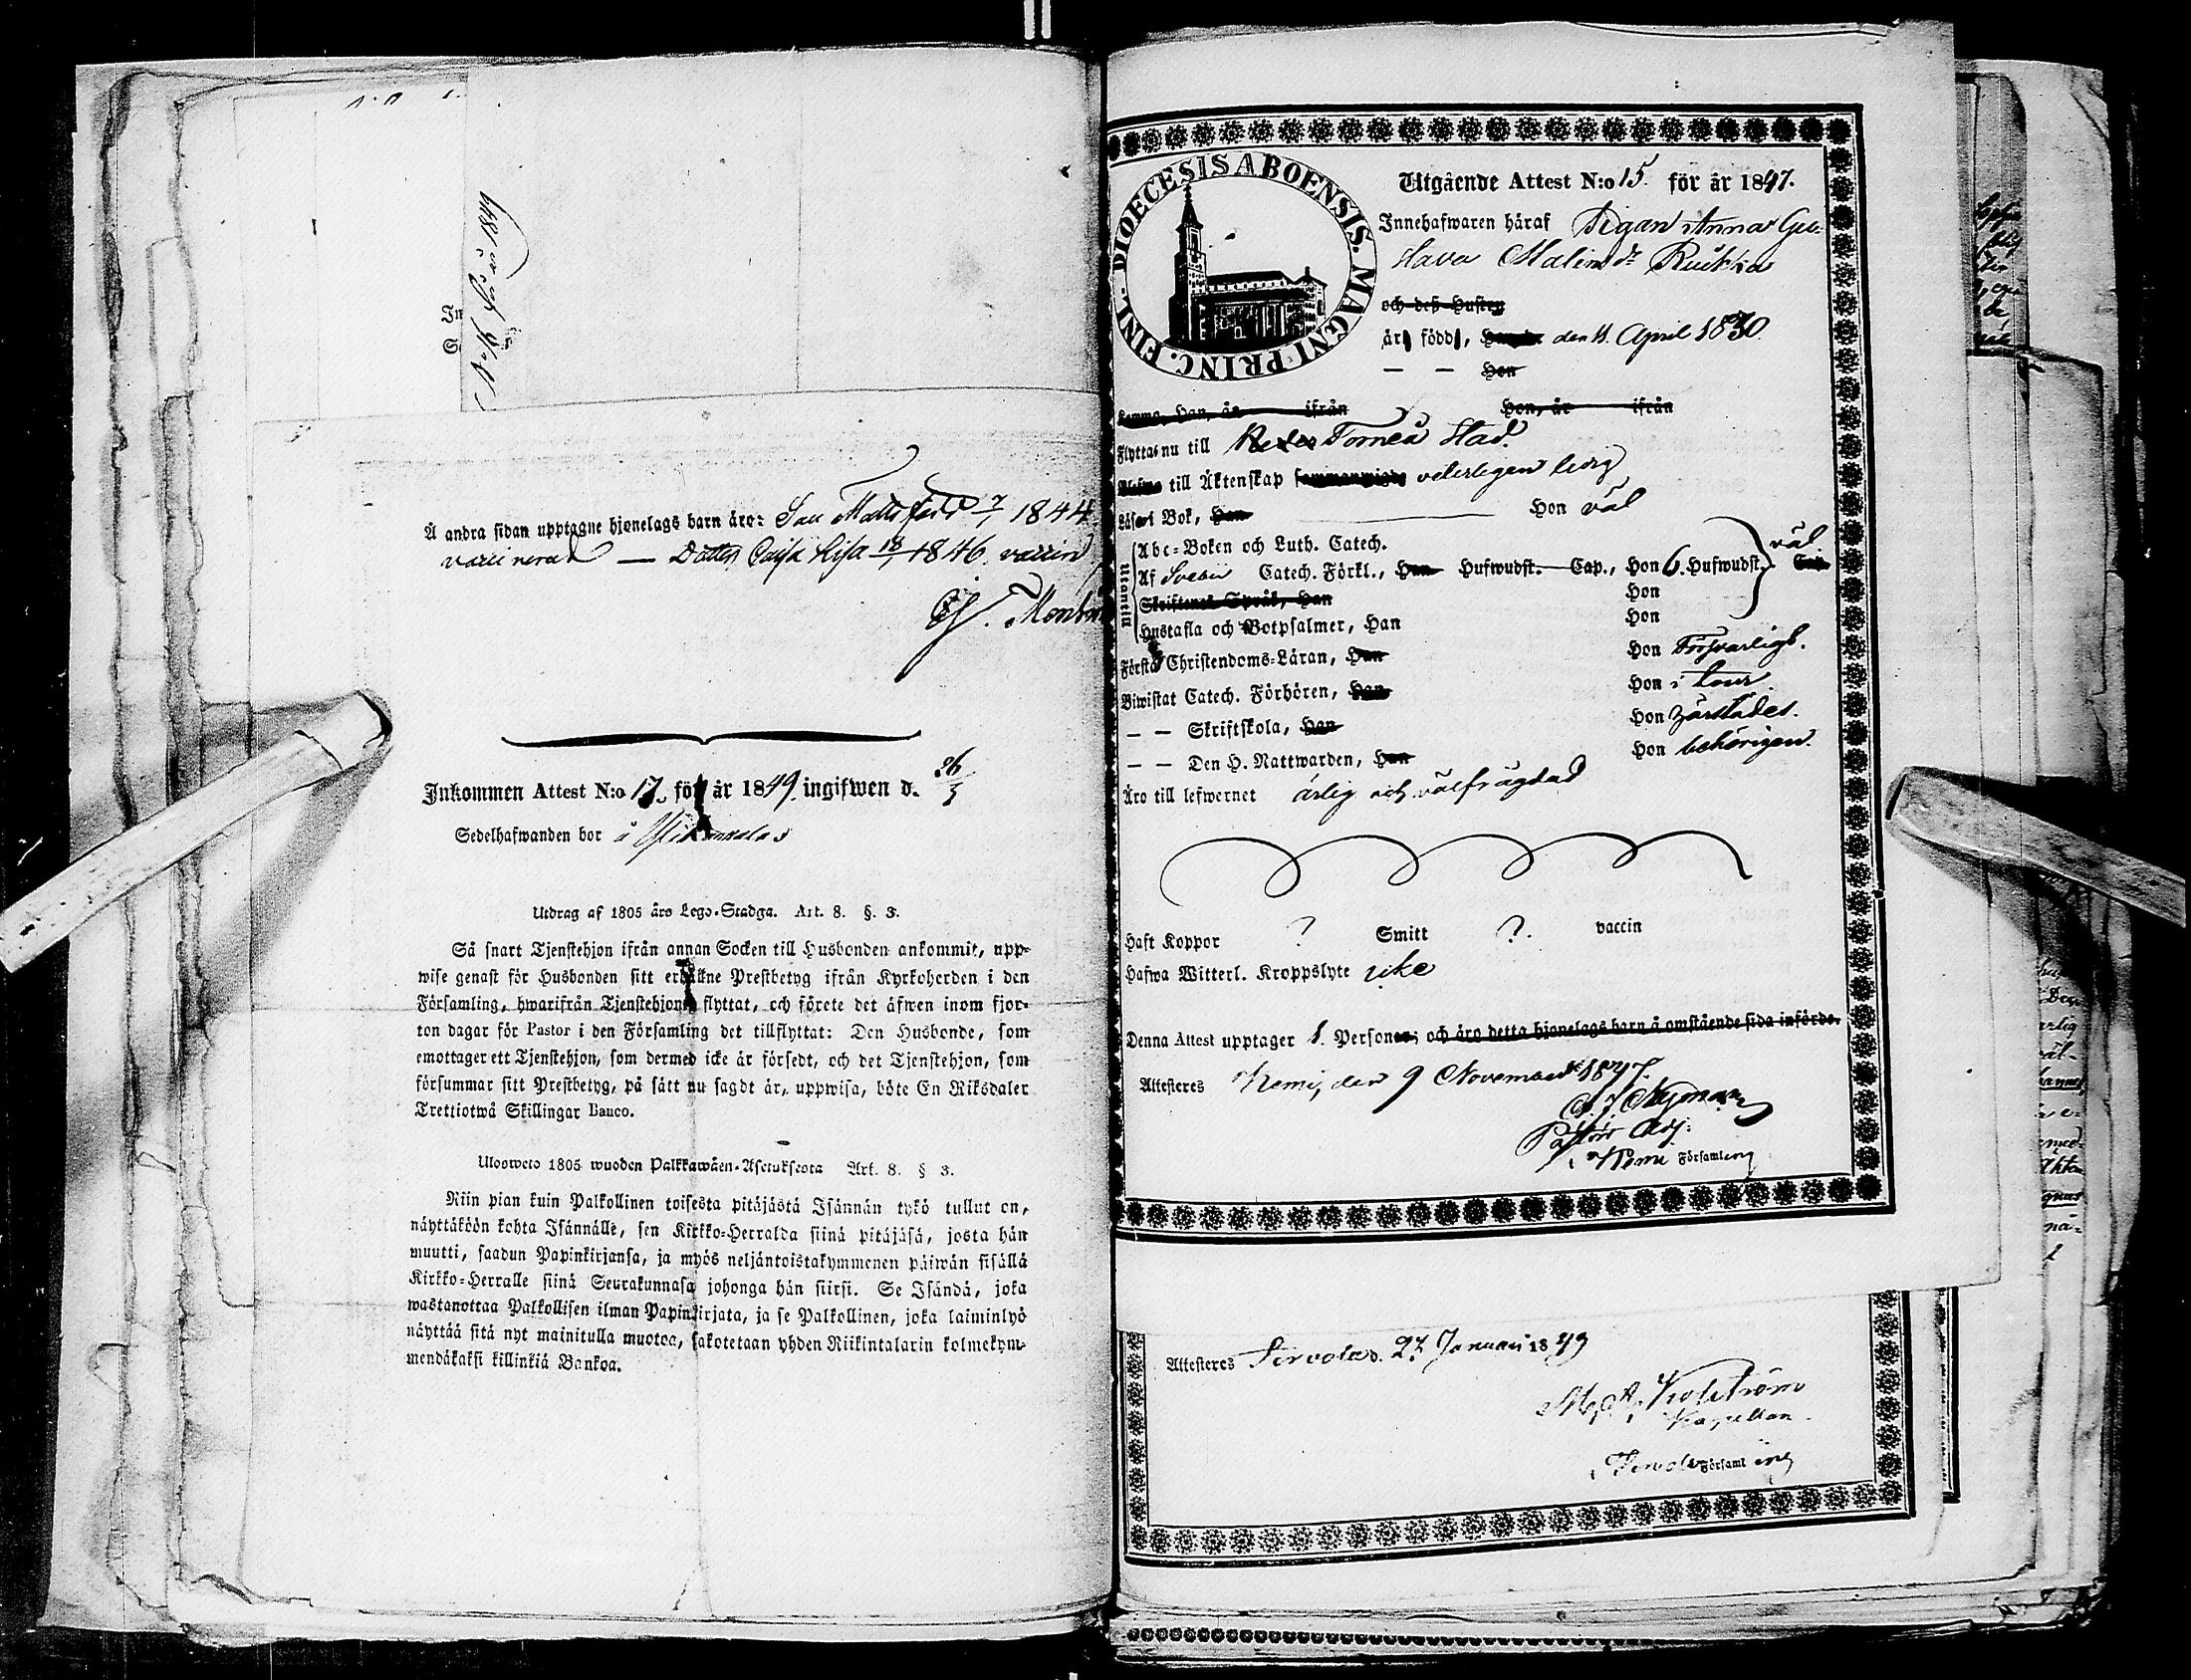 In
S
Å andra sidan upptagne hjonelags barn äro: Son Matts född 7/1 1844
vaccinerad — Dottren Cajsa Lisa 18/1 1846. vaccin
Inkommen Attest N:o 17. för år 1849. ingifwen d. 26/3
Sedelhafwanden bor å
Utdrag af 1805 års Lego-Stadga. Art. 8. §. 3.
Så snart Tjenstehjon ifrån annan Socken till Husbonden ankommit, upp-
wise genast för Husbonden sitt erhållne Prestbetyg ifrån Kyrkoherden i den
Församling, hwarifrån Tjenstehjonet flyttat, och förete det äfwen inom fjor-
ton dagar för Pastor i den Församling det tillflyttat: Den Husbonde, som
emottager ett Tjenstehjon, som dermed icke är försedt, och det Tjenstehjon, som
försummar sitt Prestbetyg, på sätt nu sagdt är, uppwisa, böte En Riksdaler
Trettiotwå Skillingar Banco.
Ulosweto 1805 wuoden Palkkawäen-Asetuksesta Art. 8. § 3.
Niin pian kuin Palkollinen toisesta pitäjästä Isännän tykö tullut on,
näyttäköön kohta Isännälle, sen Kirkko-Herralda siinä pitäjäsä, josta hän
muutti, saadun Papinkirjansa, ja myös neljäntoistakymmenen päiwän sisällä
Kirkko-Herralle siinä Seurakunnasa johonga hän siirsi. Se Isändä, joka
wastanottaa Palkollisen ilman Papinkirjata, ja se Palkollinen, joka laiminlyö
näyttää sitä nyt mainitulla muotoa, sakotetaan yhden Riikintalarin kolmekym-
mendäkaksi killinkiä Bankoa.
DIOECESIS ABOENSIS. MAGNI PRINC. FINL.
Utgående Attest N:o 15. för år 1847.
Innehafwaren häraf Pigan Anna Gu-
stava Malin dr Ruikka
och deß Hustru
är född, den 11. April 1830.
— — Hon
Komma, Han, år ifrån Hon, år ifrån
Flyttas nu till Torneå Stad.
till Äktenskap sammanwigde vederlegen ledig
Läser i Bok, Han — Hon väl
Utantill
Abc-Boken och Luth. Catech.
Af Svebii Catech. Förkl., Han Hufwudst. Cap., Hon 6. Hufwudst. Cap. väl
Skriftenes Språk, Han Hon
Hustafla och Botpsalmer, Han Hon
Första Christendoms-Läran, Han Hon Försvarligt.
Biwistat Catech. Förhören, Han Hon i tour
— — Skriftskola, Han Hon härstädes.
— — Den H. Nattwarden, Han Hon behörigen.
Äro till lefwernet ärlig och välfrägdad
Haft Koppor ? Smitt ?. vaccin
Hafwa Witterl. Kroppslyte icke
Denna Attest upptager 1. Personer; och äro detta hjonelags barn å omstående sida införde.
Attesteres Kemi, den 9 November 1847.
Nyman
Pastors Adj.
i Kemi Församling
Attesteres Tervola d. 27 Januari 1849
Kapellan.
i Tervola Församling